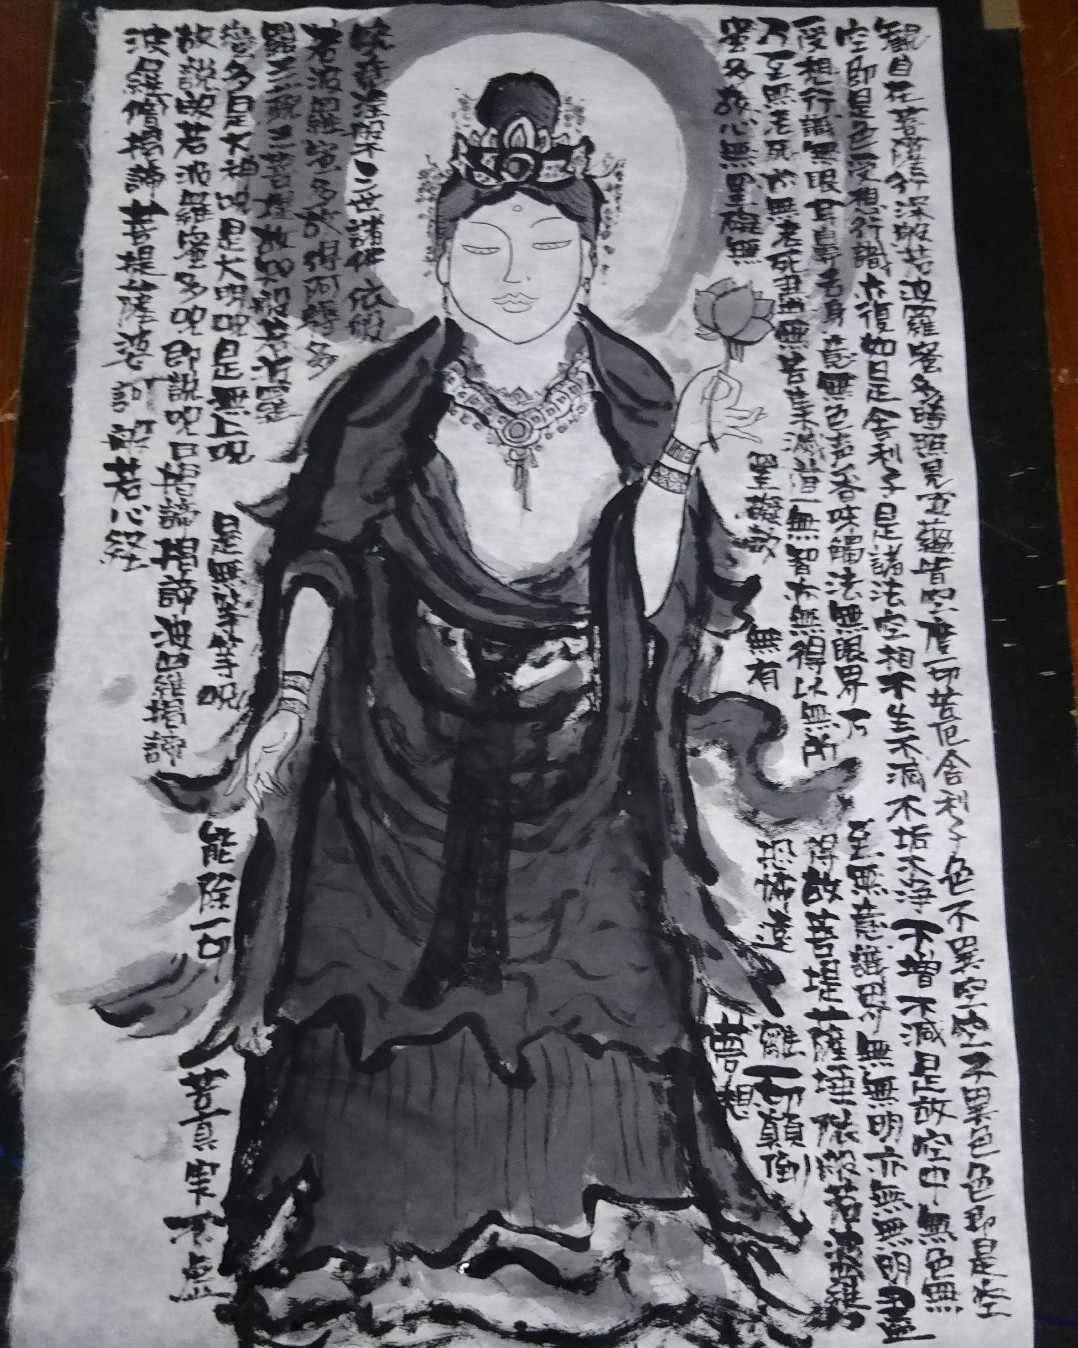 観自在菩薩行深般若波羅蜜多時照見五蘊皆空度一切苦厄舎利子色不異空空不異色色即是空
空即是色受想行識亦復如是舎利子是諸法空相不生不滅不垢不浄不増不減是故空中無色無
受想行識無眼耳鼻舌身意無色声香味觸法無眼界乃至無意識界無無明亦無無明盡
乃至無老死亦無老死盡無苦集滅道無智亦無得以無所得故菩提薩埵依般若波羅
蜜多故心無罣礙無罣礙故無有恐怖遠離一切顛倒
夢想
究竟涅槃三世諸仏依般
若波羅蜜多故得阿耨多
羅三藐三菩提故知般若波羅
蜜多是大神呪是大明呪是無上呪是無等等呪能除一切苦真実不虚
故説般若波羅蜜多呪即説呪曰掲諦掲諦波羅掲諦
波羅僧掲諦菩提薩婆訶般若心経